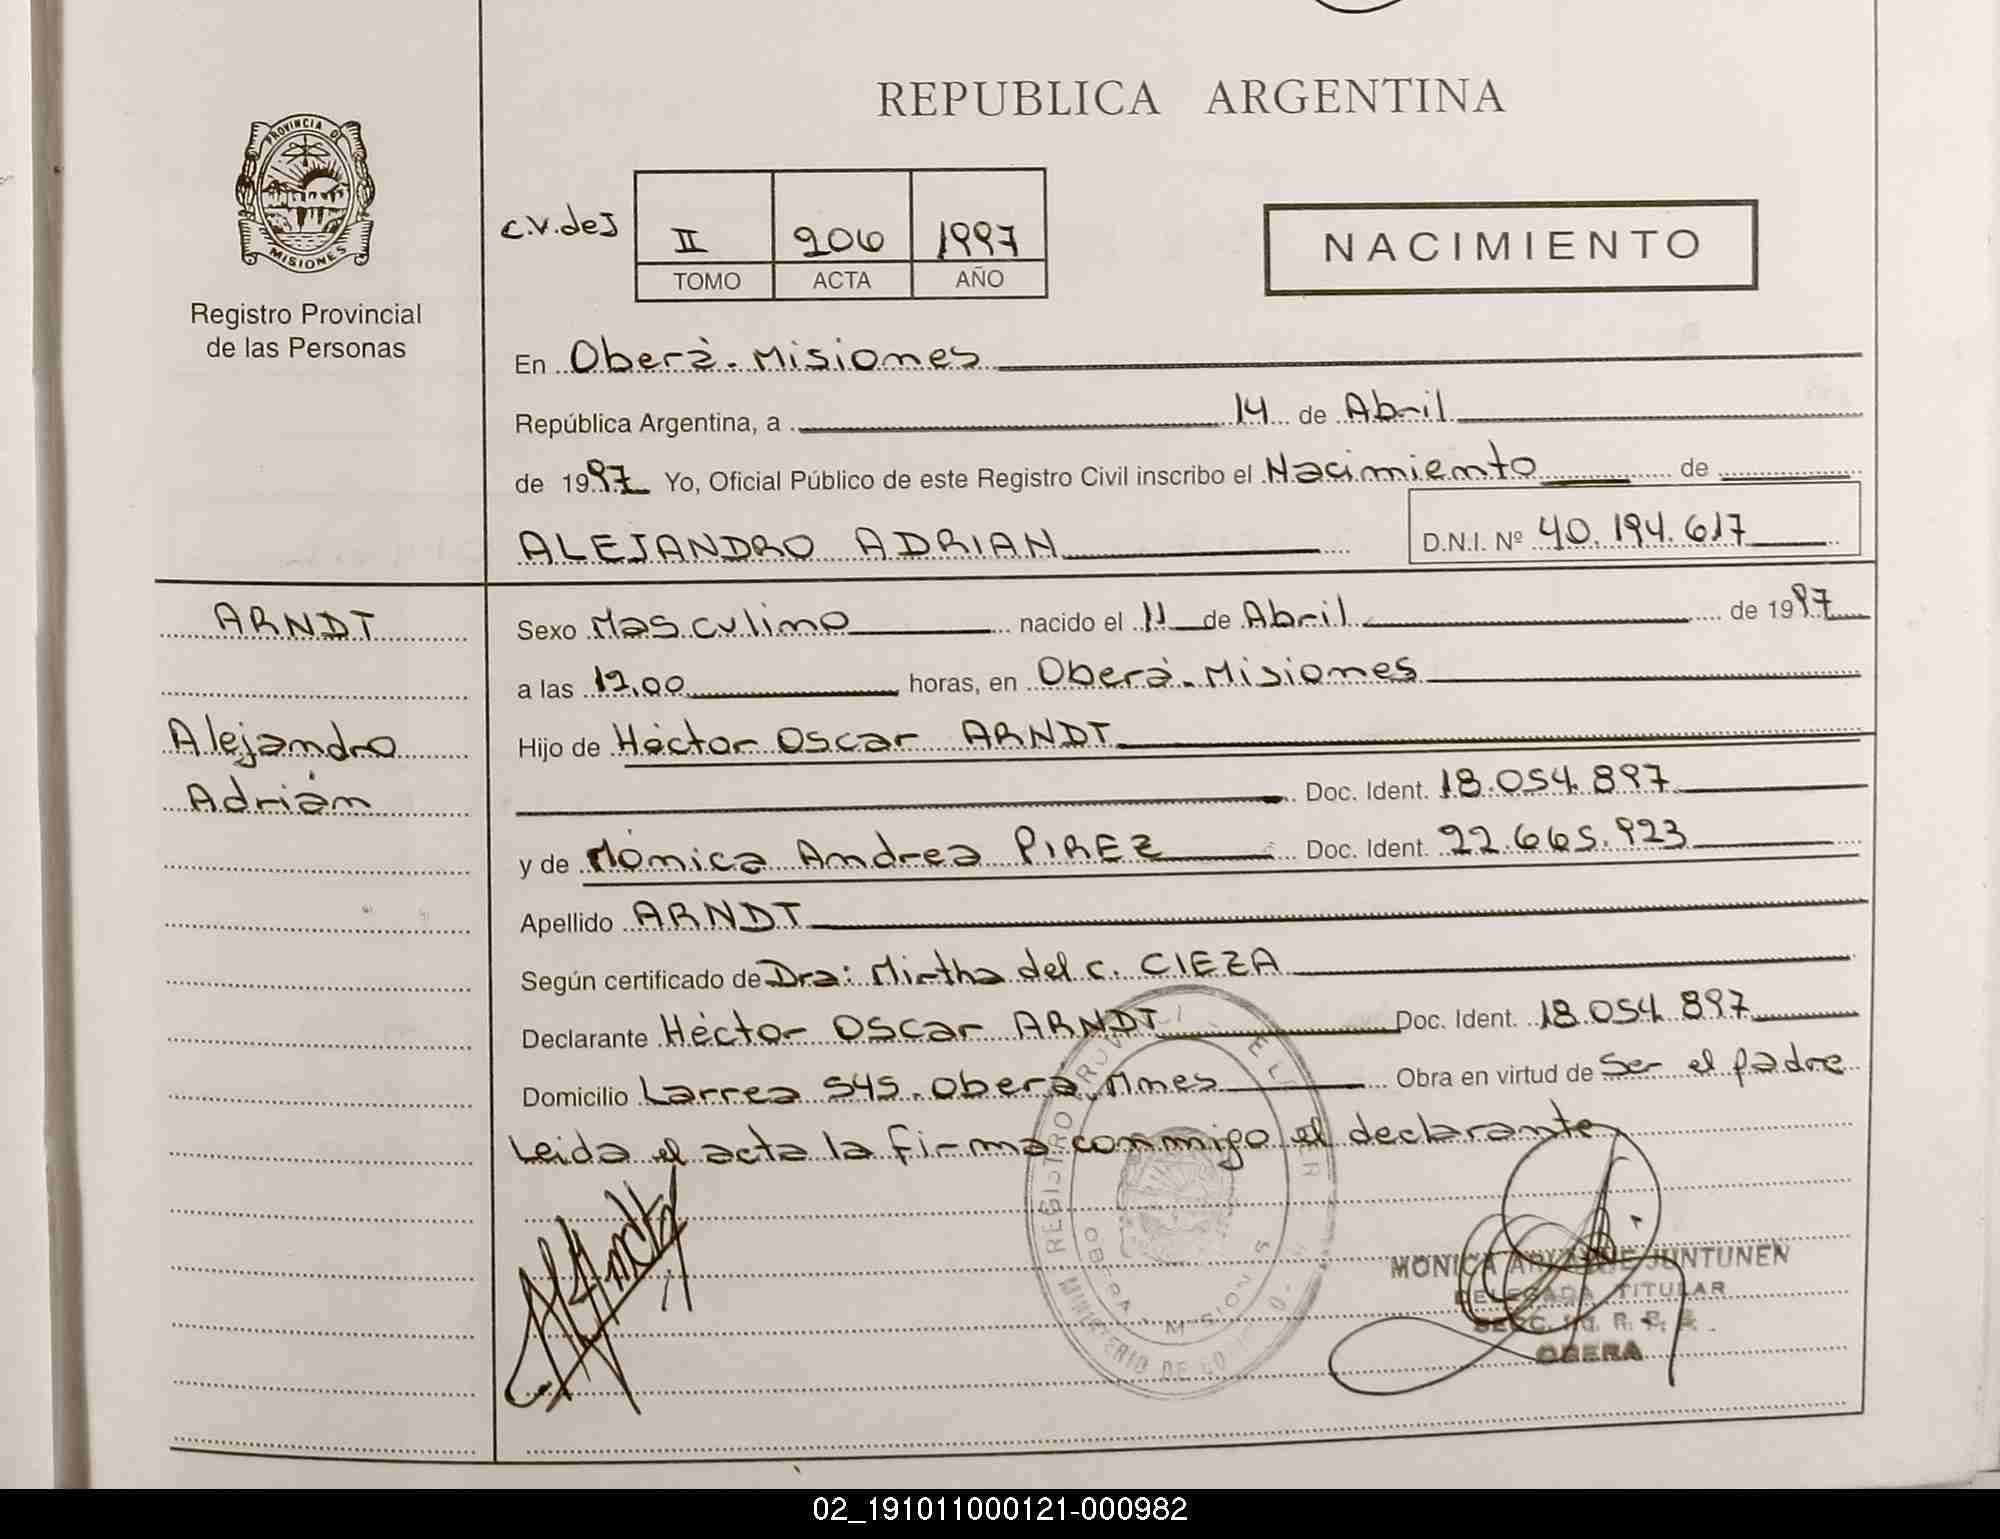 REPUBLICA ARGENTINA
PROVINCIA DE
MISIONES
Registro Provincial
de las Personas
C.V. de J
II 206 1997
TOMO ACTA AÑO
NACIMIENTO
En Oberà - Misiones
República Argentina, a 14 de Abril
de 1997 Yo, Oficial Público de este Registro Civil inscribo el Nacimiento de
ALEJANDRO ADRIAN D.N.I. Nº 40.194.617
ARNDT
Alejandro
Adrián
Sexo Masculino nacido el 11 de Abril de 1997
a las 12,00 horas, en Oberà - Misiones
Hijo de Héctor Oscar ARNDT
Doc. Ident. 18.054.897
y de Mónica Andrea PIREZ Doc. Ident. 22.665.923
Apellido ARNDT
Según certificado de Dra: Mirtha del C. CIEZA
Declarante Héctor Oscar ARNDT Doc. Ident. 18.054.897
Domicilio Larrea 545 - Oberà, Mnes Obra en virtud de Ser el padre
Leida el acta la firma conmigo el declarante
REGISTRO
OBERA - MISIONES
MINISTERIO DE
MONICA JUNTUNEN
DELEGADA TITULAR
OBERA
02_191011000121-000982